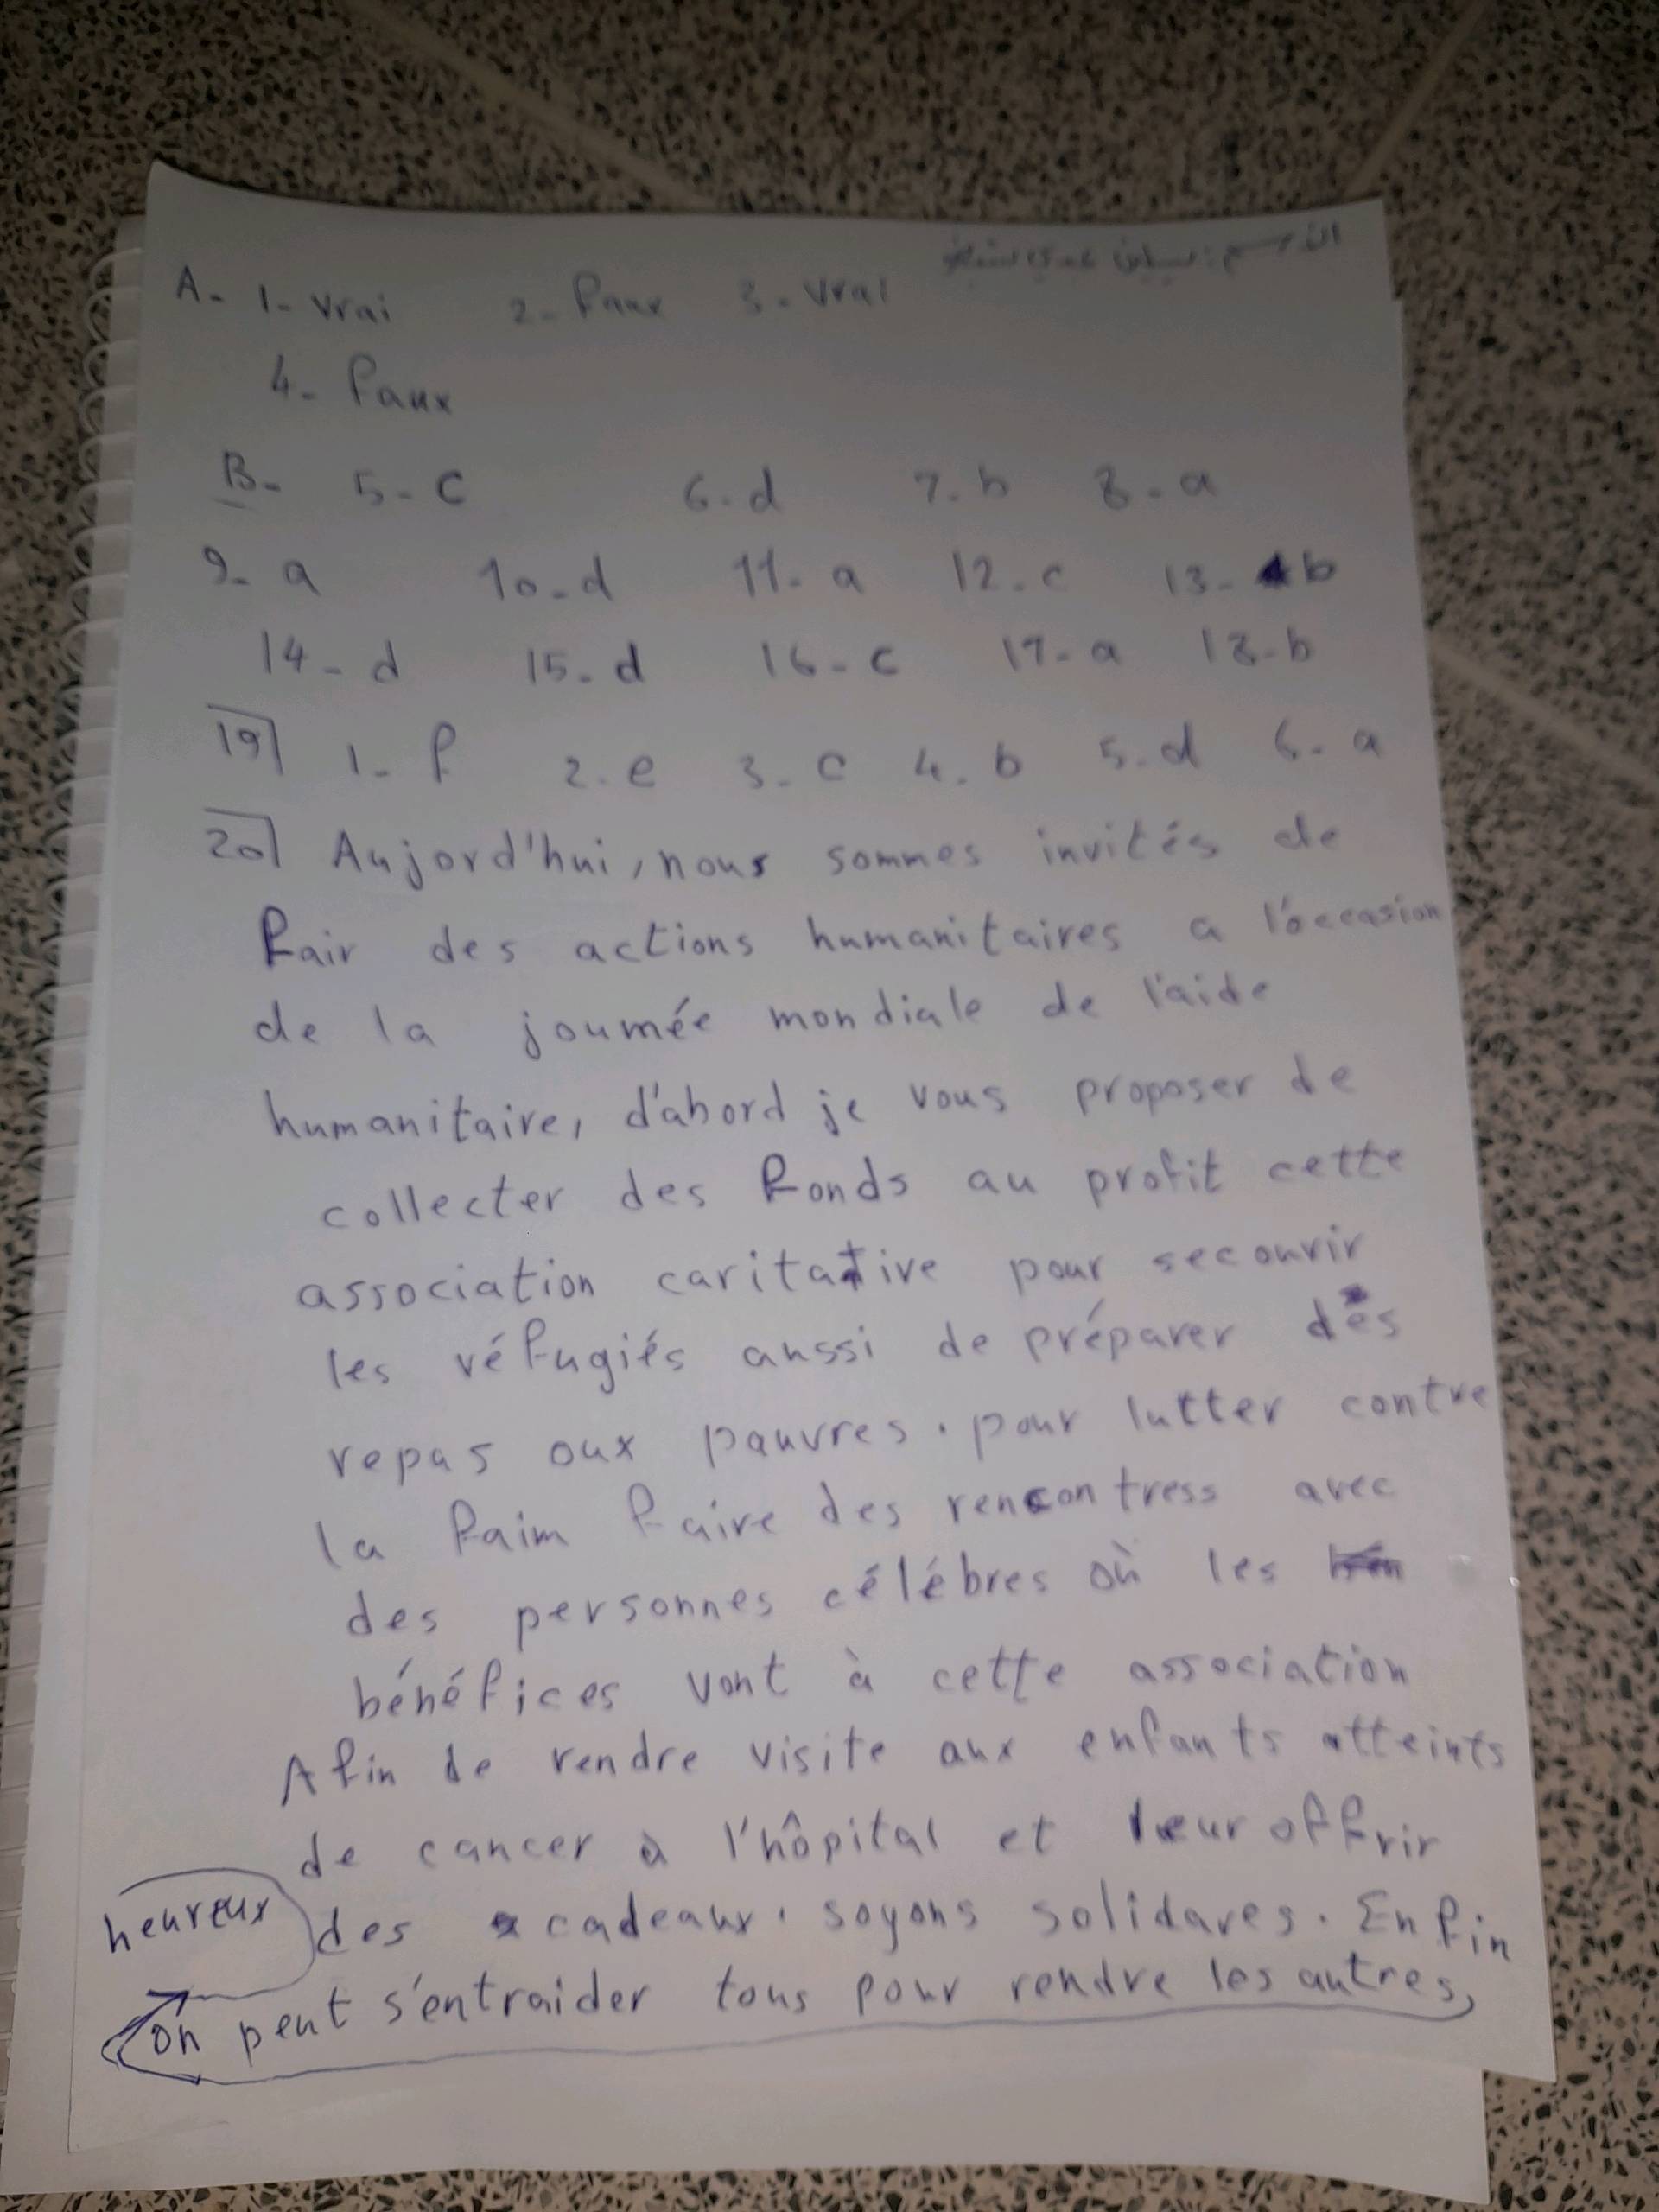 A- 1- Vrai 2- Faux 3- Vrai
4- Faux
B- 5- C 6-d 7-b 8-a
9- a 10-d 11-a 12-c 13- b
14-d 15-d 16-c 17-a 18-b
19 1- f 2-e 3-c 4-b 5-d 6-a
20 Aujord'hui, nous sommes invités de
fair des actions humanitaires a l'occasion
de la journée mondiale de l'aide
humanitaire, d'abord je vous proposer de
collecter des fonds au profit cette
association caritative pour secourir
les réfugiés aussi de préparer des
repas oux pauvres. pour lutter contre
la faim faire des rencontress avec
des personnes célébres où les
bénéfices vont à cette association
Afin de rendre visite aux enfants atteints
de cancer à l'hôpital et leur offrir
des cadeaux. soyons solidares. Enfin
on peut s'entraider tous pour rendre les autres,
heureux